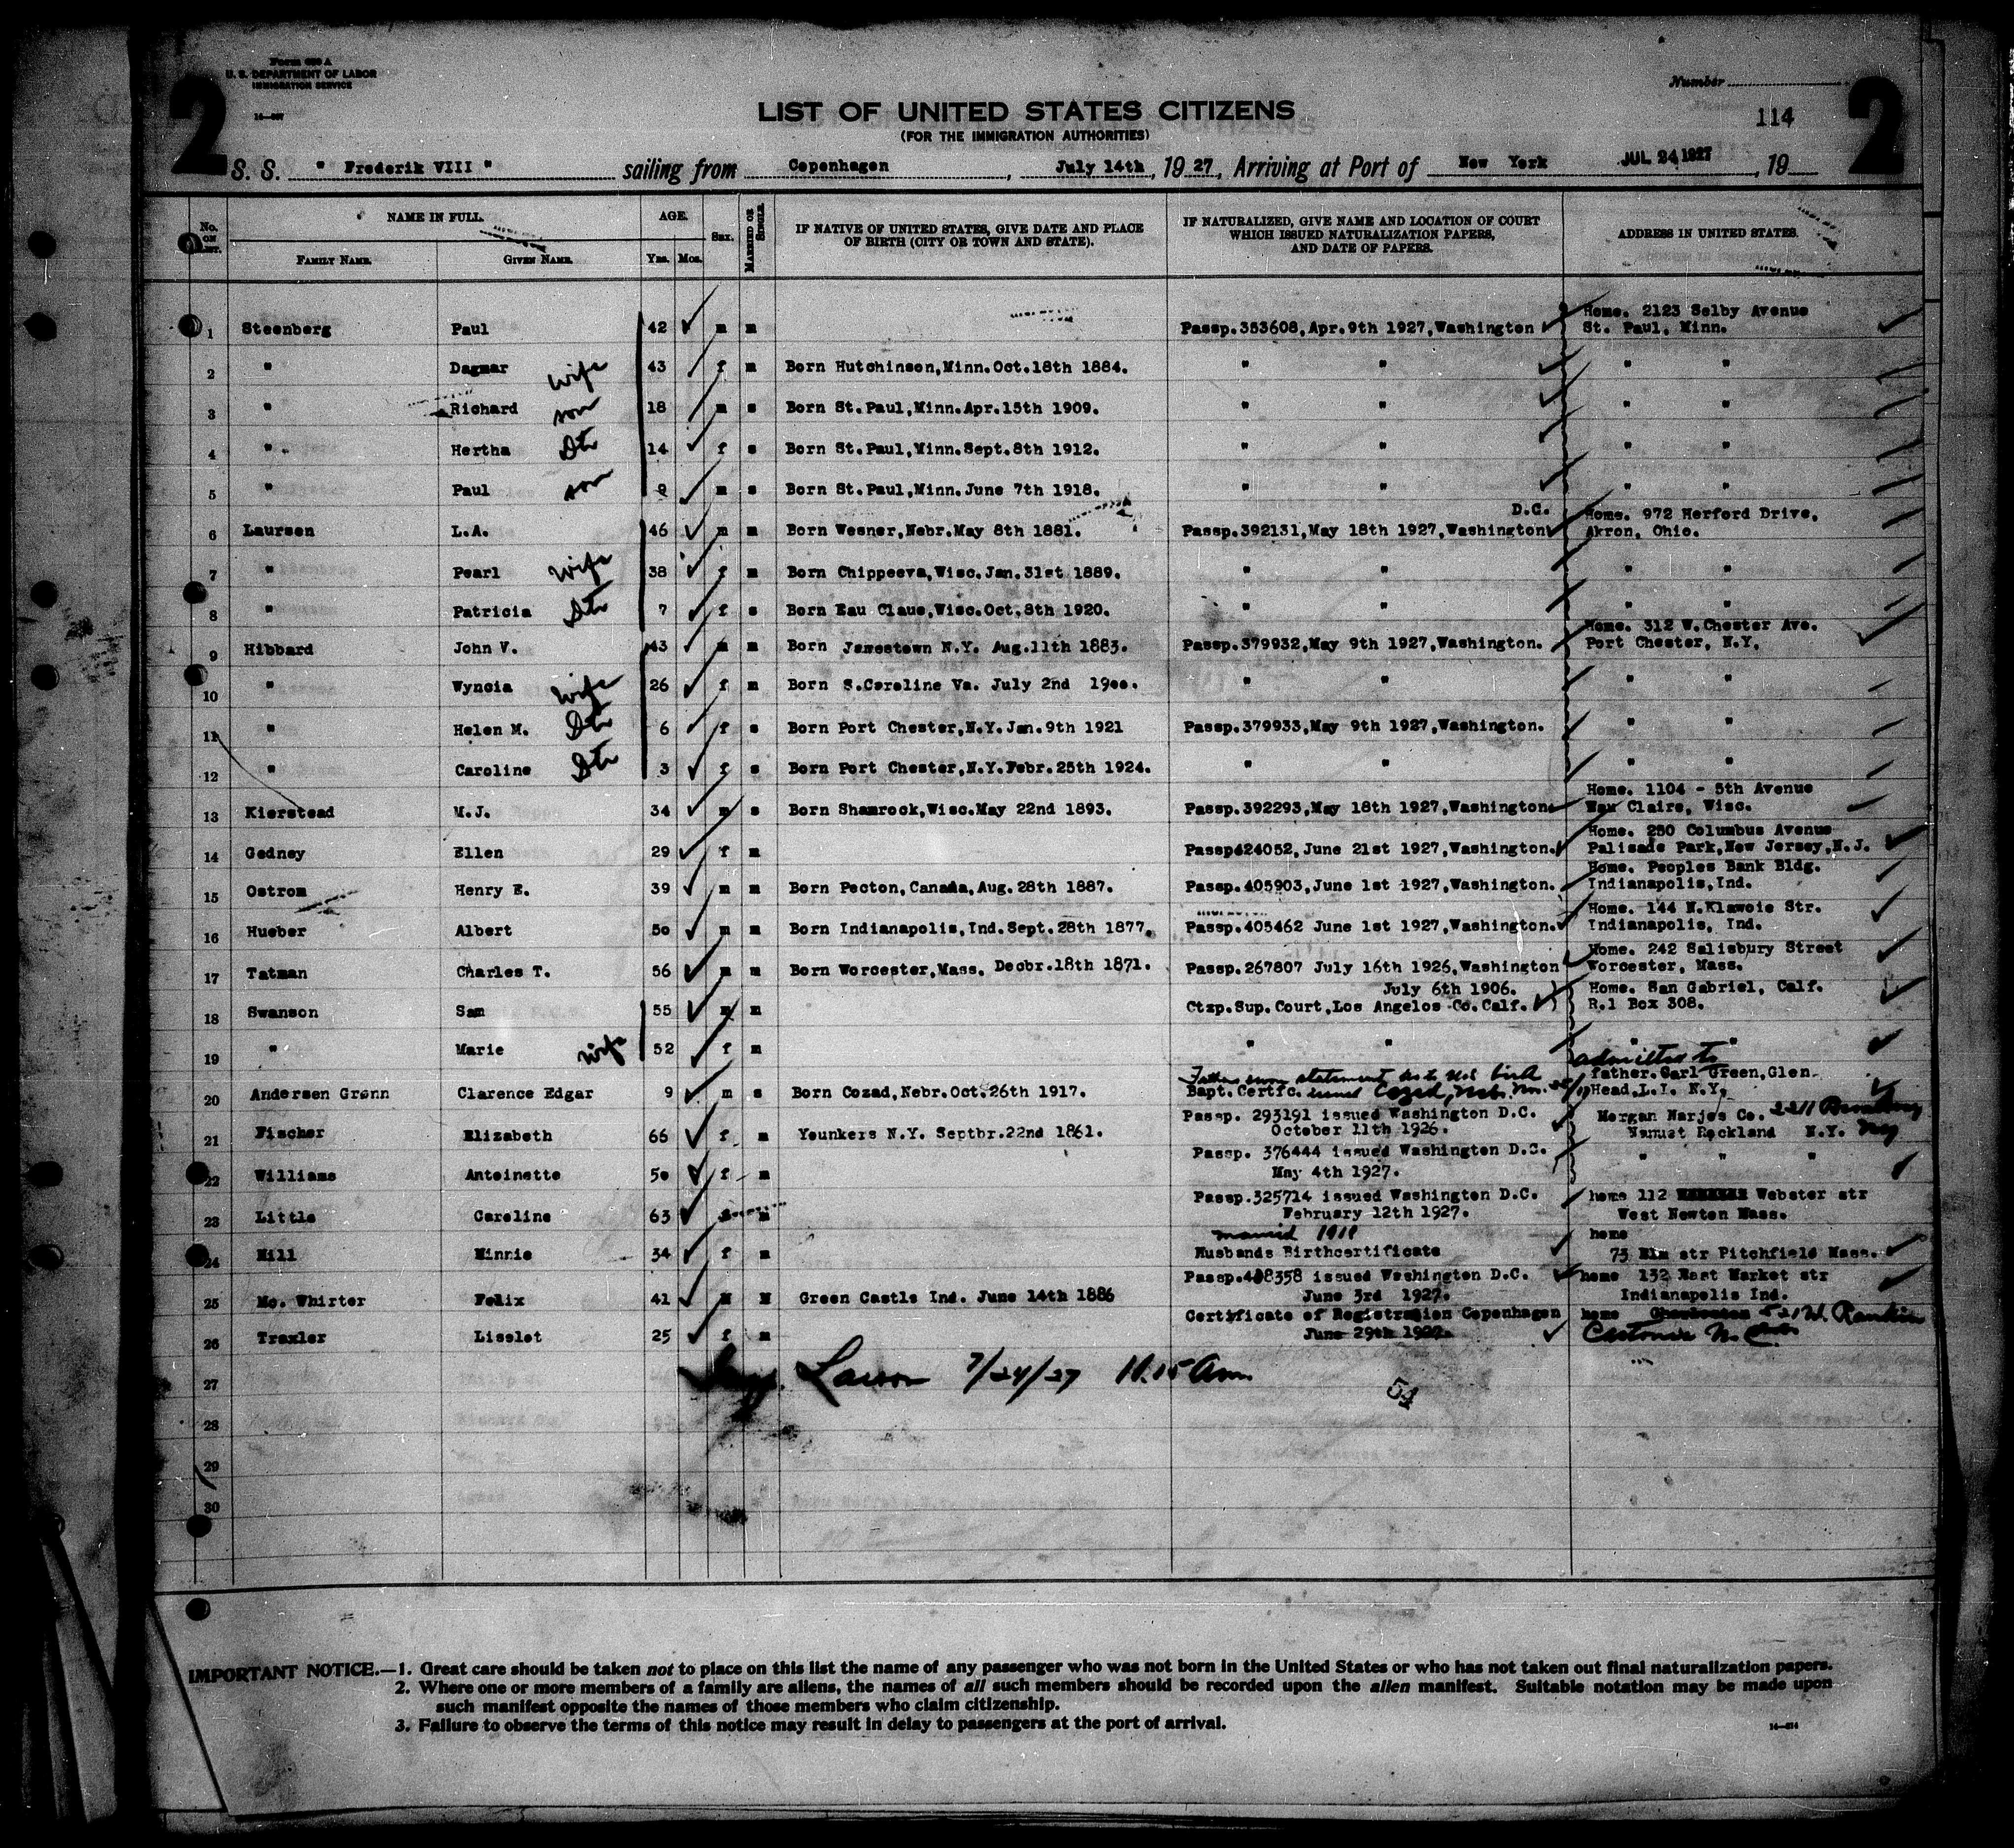 Form 630 A
U. S. DEPARTMENT OF LABOR
IMMIGRATION SERVICE
2
2
Number
114
LIST OF UNITED STATES CITIZENS
(FOR THE IMMIGRATION AUTHORITIES)
S. S. " Frederik VIII " sailing from Copenhagen, July 14th, 1927, Arriving at Port of New York JUL 24 1927, 19
No. ON LIST.
NAME IN FULL.
FAMILY NAME.
GIVEN NAME.
AGE.
Yrs. Mos.
SEX.
MARRIED OR SINGLE.
IF NATIVE OF UNITED STATES, GIVE DATE AND PLACE
OF BIRTH (CITY OR TOWN AND STATE).
IF NATURALIZED, GIVE NAME AND LOCATION OF COURT
WHICH ISSUED NATURALIZATION PAPERS,
AND DATE OF PAPERS.
ADDRESS IN UNITED STATES.
Home. 2123 Selby Avenue
1 Steenberg Paul 42 m m Passp.353608, Apr.9th 1927, Washington St. Paul, Minn.
2 " Dagmar wife 43 f m Born Hutchinson, Minn. Oct.18th 1884. " " " "
3 " Richard son 18 m s Born St.Paul, Minn. Apr.15th 1909. " " " "
4 " Hertha Dtr 14 f s Born St.Paul, Minn. Sept.8th 1912. " " " "
5 " Paul son 9 m s Born St.Paul, Minn. June 7th 1918. " " " "
D.C. Home. 972 Herford Drive,
6 Laursen L.A. 46 m m Born Wesner, Nebr. May 8th 1881. Passp.392131, May 18th 1927, Washington Akron, Ohio.
7 " Pearl wife 38 f m Born Chippeeva, Wisc. Jan.31st 1889. " " " "
8 " Patricia Dtr 7 f s Born Eau Claue, Wisc. Oct.8th 1920. " " " "
Home. 312 W.Chester Ave.
9 Hibbard John V. 43 m m Born Jamestown N.Y. Aug.11th 1883. Passp.379932, May 9th 1927, Washington. Port Chester, N.Y.
10 " Wyncia wife 26 f m Born S.Caroline Va. July 2nd 19oo. " " " "
11 " Helen M. Dtr 6 f s Born Port Chester, N.Y. Jan.9th 1921 Passp.379933, May 9th 1927, Washington. " "
12 " Caroline Dtr 3 f s Born Port Chester, N.Y. Febr.25th 1924. " " " "
Home. 1104 - 5th Avenue
13 Kierstead M.J. 34 m s Born Shamrock, Wisc. May 22nd 1893. Passp.392293, May 18th 1927, Washington Claire, Wisc.
Home. 250 Columbus Avenue
14 Gedney Ellen 29 f m Passp424052, June 21st 1927, Washington. Palisade Park, New Jersey, N.J.
Home. Peoples Bank Bldg.
15 Ostrom Henry E. 39 m m Born Pecton, Canada, Aug.28th 1887. Passp.405903, June 1st 1927, Washington. Indianapolis, Ind.
Home. 144 N.Klawoie Str.
16 Hueber Albert 5o m m Born Indianapolis, Ind. Sept.28th 1877. Passp.405462 June 1st 1927, Washington. Indianapolis, Ind.
Home. 242 Salisbury Street
17 Tatman Charles T. 56 m m Born Worcester, Mass. Decbr.18th 1871. Passp.267807 July 16th 1926, Washington Worcester, Mass.
July 6th 1906. Home. San Gabriel, Calf.
18 Swanson Sam 55 m m Ctzp.Sup.Court, Los Angelos Co.Calf. R.1 Box 308.
19 " Marie wife 52 f m " " " "
admitted to
statement as to U.S. birth father. Carl Green, Glen
20 Andersen Grønn Clarence Edgar 9 m s Born Cozad, Nebr. Oct.26th 1917. Bapt.Certfc. issued Cozad, Neb. Head, L.I. N.Y.
Passp. 293191 issued Washington D.C. Morgan Harjes Co.
21 Fischer Elizabeth 66 f m Younkers N.Y. Septbr.22nd 1861. October 11th 1926. Rockland N.Y.
Passp. 376444 issued Washington D.C. " " "
22 Williams Antoinette 5o f m May 4th 1927.
Passp.325714 issued Washington D.C. home 112 Webster str
23 Little Caroline 63 m February 12th 1927. West Newton Mass.
married home
24 Hill Minnie 34 f m Husbands Birthcertificate 73 Elm str Pitchfield Mass.
Passp.408358 issued Washington D.C. home 132 East Market str
25 Mc. Whirter Felix 41 M M Green Castle Ind. June 14th 1886 June 3rd 1927. Indianapolis Ind.
Certificate of Registration Copenhagen home 521 W. Rankin
26 Traxler Liselet 25 f m June 29th 1927.
27 Larson 7/24/27 11.15 Am.
54
28
29
30
IMPORTANT NOTICE.—1. Great care should be taken not to place on this list the name of any passenger who was not born in the United States or who has not taken out final naturalization papers.
2. Where one or more members of a family are aliens, the names of all such members should be recorded upon the alien manifest. Suitable notation may be made upon
such manifest opposite the names of those members who claim citizenship.
3. Failure to observe the terms of this notice may result in delay to passengers at the port of arrival.